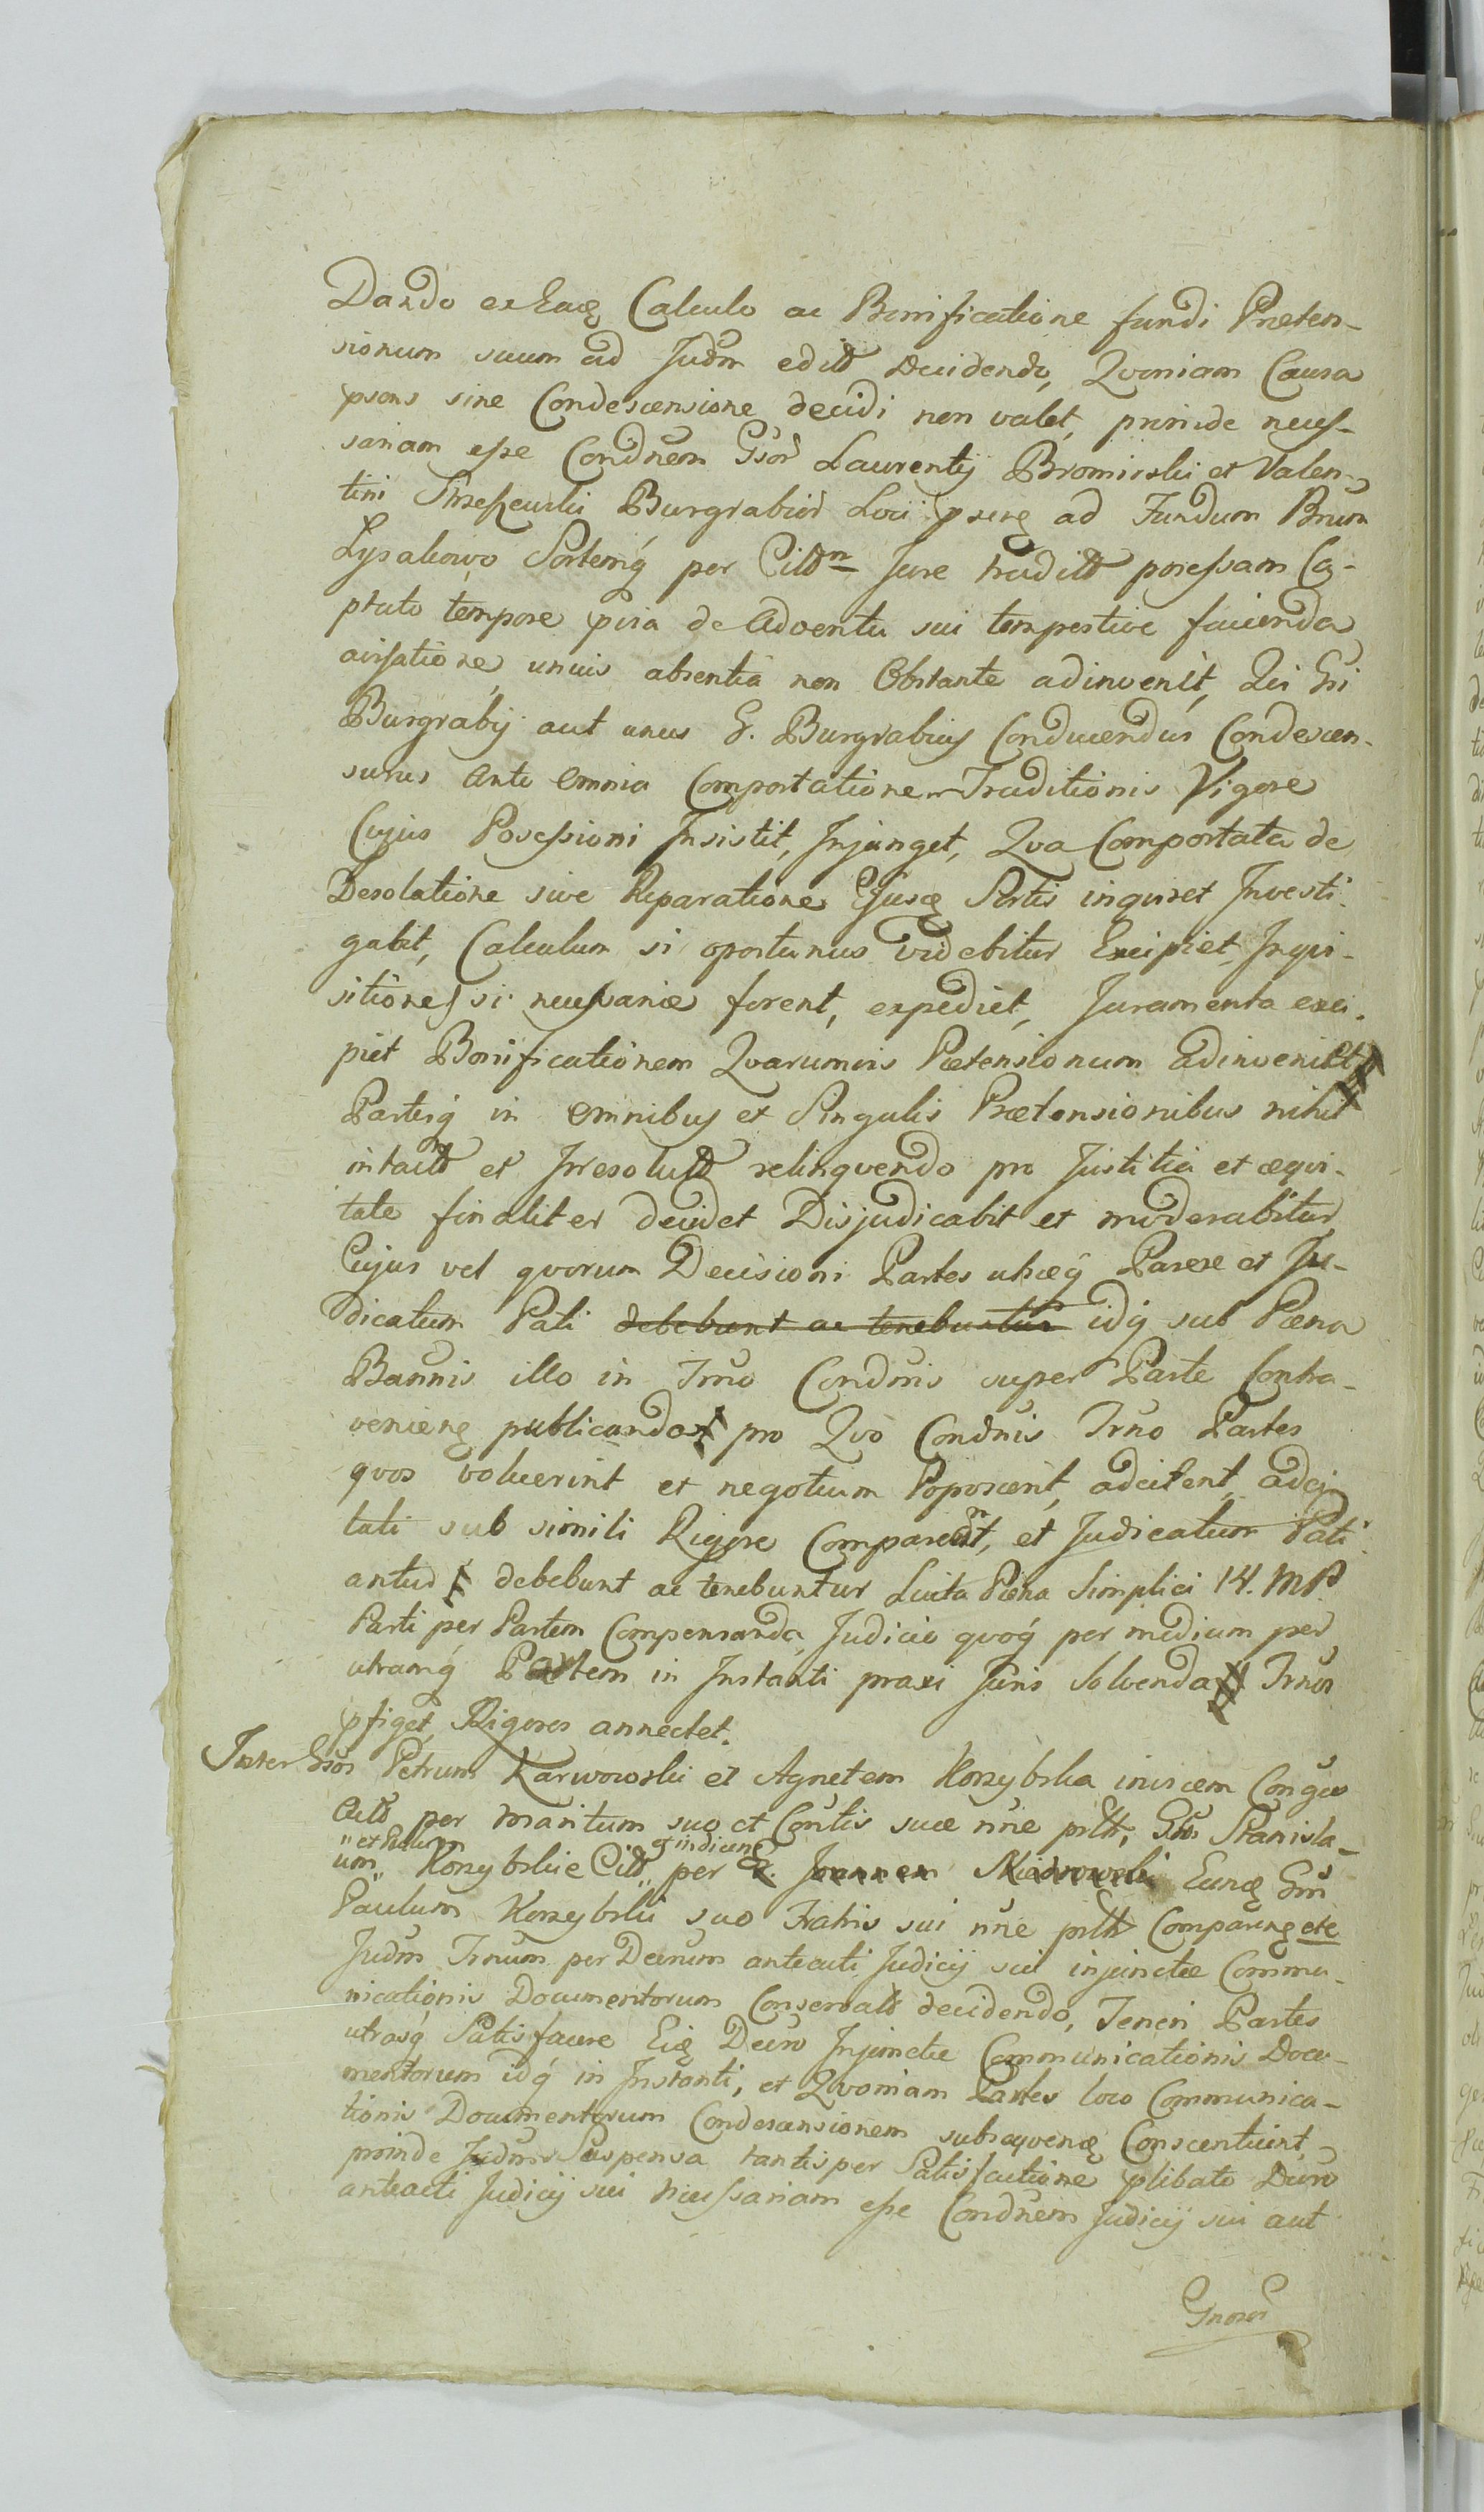 Dando ex Eaq Calculo ac Bonificatione fundi Præten-
sionum suum ad Judm edito decidendo, Qvoniam Causa
psens sine Condescensione decidi non valet, proinde necess-
sariam esse Condnem Gsor Laurentij Bromirski et Valen-
tini Burgrabior Loci pseng ad Fundum Bnor
Lysakowo Sortemq per Citt Jure tradit possessam Ca-
ptato tempore pvia de Adventu sui tempestive facienda
avisatione unius absentia non Obstante adinvenit, Qui Gsi
Burgrabij aut unus G. Burgrabius Conducendus Condescen-
surus Ante Omnia Comportationem Traditionis Vigore
Cujus Possessioni Insistit, Injunget, Qva Comportata de
Desolatione sive Reparatione Ejusq Sortis inquiret Investi-
gabit, Calculum si oportunus videbitur Excipiet, Inqvi-
sitiones si necessariæ forent, expediet, Juramenta exci-
piet Bonificationem Qvarumvis Prætensionum adinveniet
Partesq in Omnibus et Singulis Prætensionibus nihil
intactt et Irresolutt relinqvendo pro Justitia et æqvi-
tate finaliter decidet Disjudicabit et moderabitur
Cujus vel qvorum Decisioni Partes utræq Parere et Ju-
dicatum Pati debebunt ac tenebuntur idq sub Pæna
Bannis illo in Trno Condnis super Parte Contra-
venieng publicando pro Qvo Condnis Trno Partes
qvos voluerint et negotium Poposcerit, adcitent, adci-
tati sub simili Rigore Compareant, et Judicatum Pati
antur debebunt ac tenebuntur Luita Pæna Simplici 14. MP.
Parti per Partem Compensanda, Judicio qvoq per medium per
utramq Partem in Instanti praxi Juris Solvenda Trnos
pfiget, Rigores annectet.
Inter Gsos Petrum Karwowski et Agnetem Korzybska invicem Conges
Actt per Maritum suo et Contis suæ nne prltt, Gsos Stanisla-
um „et Paulum„ Korzybskie Citt „et indiceng„ per G. Joannem Eunq Gsm
Paulum Korzybski suo Fratris sui nne prltt Compareng etc
Judm Trnum per Decrum anteacti Judicij sui injunctæ Commu-
nicationis Documentorum Conservatt decidendo, Teneri Partes
utrasq Satisfacere Eiq Decro Injunctæ Communicationis Docu-
mentorum idq in Instanti, et Qvoniam Partes loco Communica-
tionis Documentorum Condescensionem subseqvenq Consentiunt,
proinde Judm Suspensa tantisper Satisfactione plibato Decro
anteacti Judicij sui necessariam esse Condnem Judicij sui aut
Gnoror